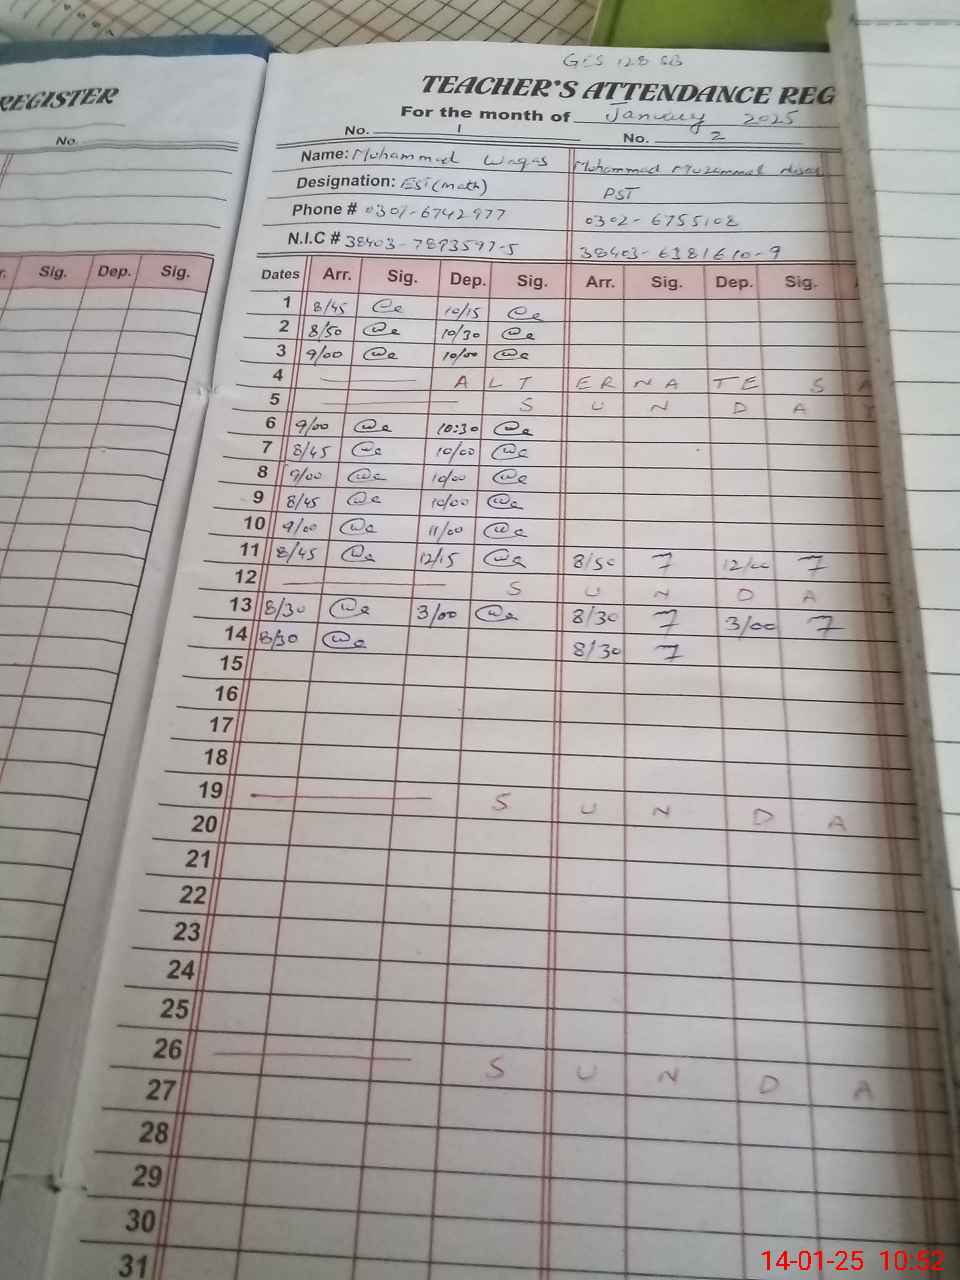 REGISTER
No.
r. Sig. Dep. Sig.
GES 128 SB
TEACHER'S ATTENDANCE REG
For the month of January 2025
No. 1 No. 2
Name: Muhammad Waqas Muhammad Muzammal
Designation: EST (Math) PST
Phone # 0301-6742977 0302-6755108
N.I.C # 38403-7893597-5 38403-6381610-9
Dates Arr. Sig. Dep. Sig. Arr. Sig. Dep. Sig.
1 8/45 10/15
2 8/50 10/30
3 9/00 10/00
4 ALTERNATE SA
5 SUNDAY
6 9/00 10:30
7 8/45 10/00
8 9/00 10/00
9 8/45 10/00
10 9/00 11/00
11 8/45 12/15 8/50 12/00
12 SUNDA
13 8/30 3/00 8/30 3/00
14 8/30 8/30
15
16
17
18
19 SUNDA
20
21
22
23
24
25
26 SUNDA
27
28
29
30
31
14-01-25 10:52